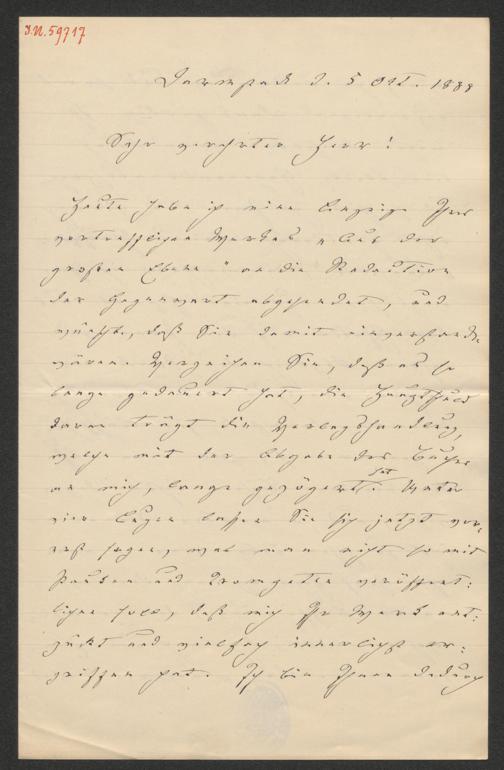 J.N. 59717
Darmstadt d. 5 Okt. 1888
Sehr verehrter Herr!
Heute habe ich eine Anzeige Ihres
vortrefflichen Werkes „Aus der
großen Ebene" an die Redaction
der Gegenwart abgesendet, und
wünsche, daß Sie damit einverstanden
wären. Verzeihen Sie, daß es so
lange gedauert hat, die Hauptschuld
daran trägt die Verlagshandlung,
welche mit der Abgabe des Buches
an mich, lange gezögert hat. Unter
vier Augen lassen Sie sich jetzt
sagen, was man nicht so mit
Pauken und Trompeten veröffent-
lichen soll, daß mich Ihr Werk ent-
zückt und vielfach innerlichst er-
griffen hat. Ich bin Ihnen dadurch